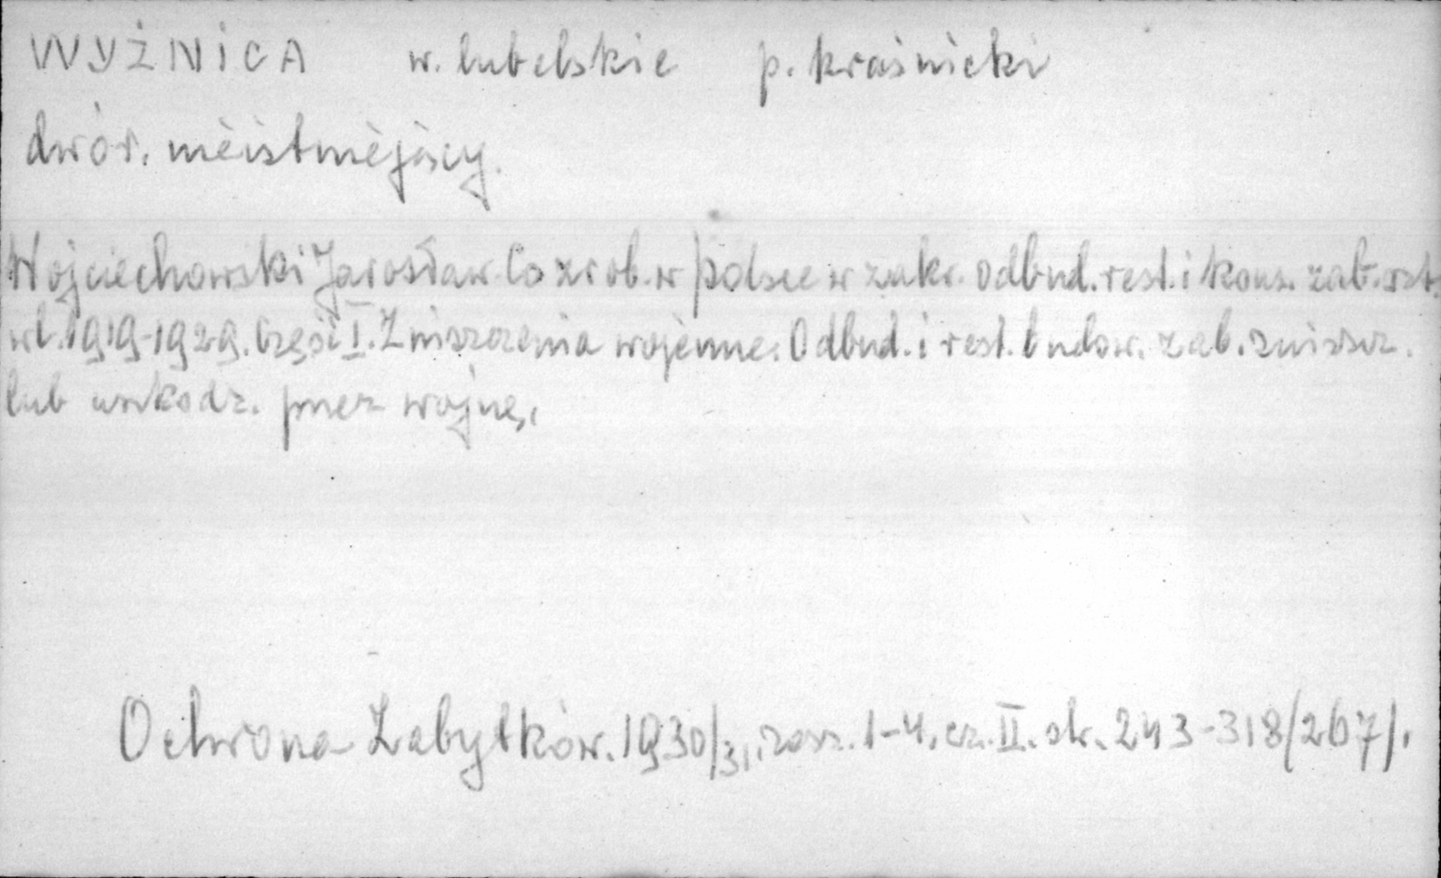 WYŻNICA w. lubelskie p. kraśnicki
dwór. nieistniejący.
Wojciechowski Jarosław. Co zrob. w Polsce w zakr. odbud. rest. i kons. zab. szt.
w l. 1919-1929. Część I. Zniszczenia wojenne. Odbud. i rest. budow. zab. zniszcz.
lub uszkodz. przez wojnę.
Ochrona Zabytków. 1930/31. zesz. 1-4. cz. II. str. 243-318/267/.